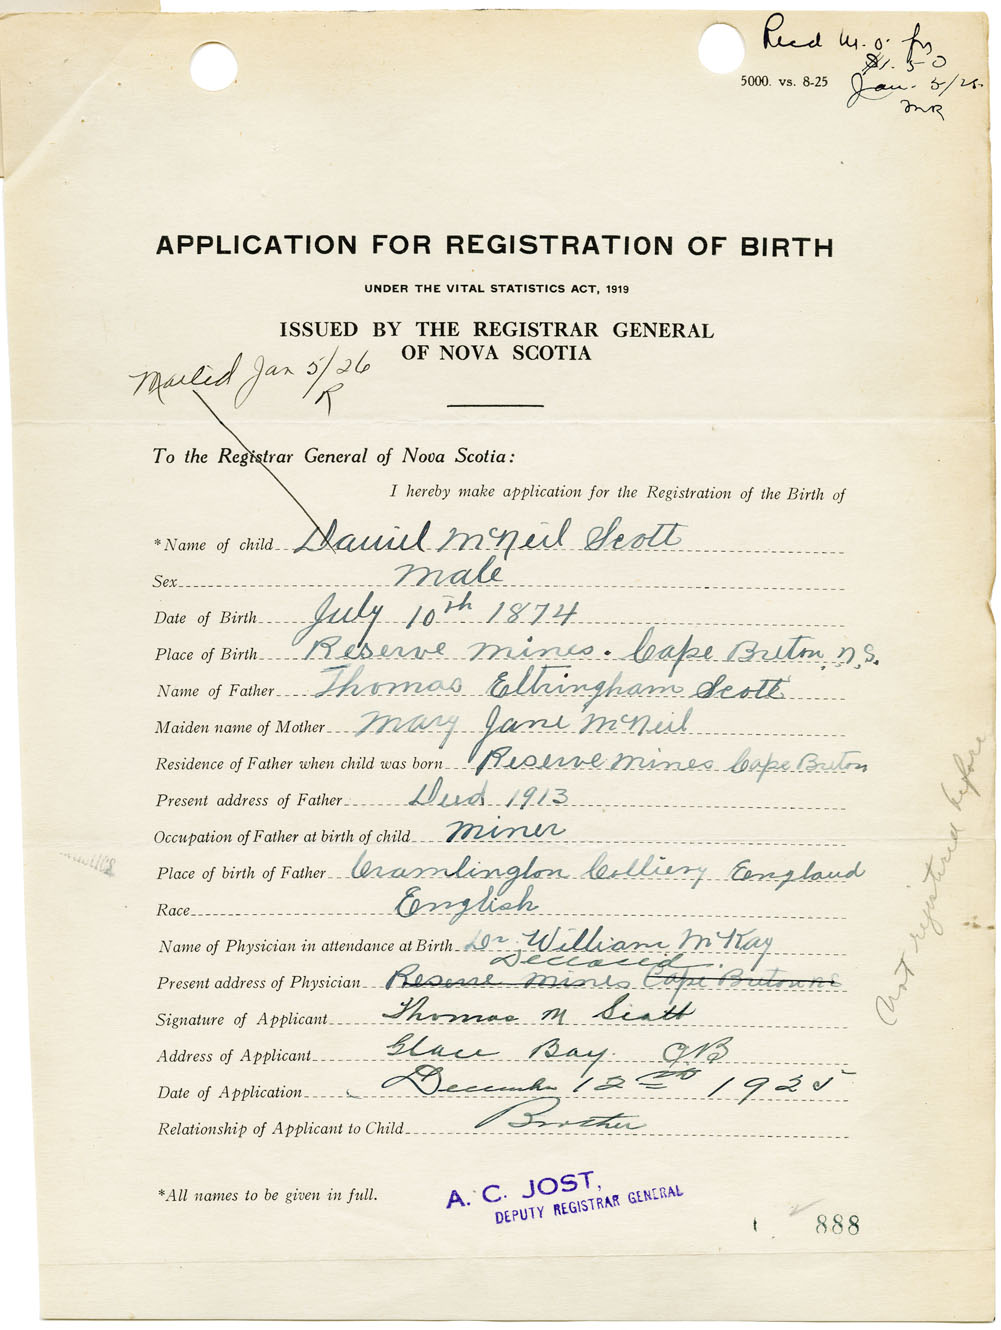 Recd M.O. for
$1.50
5000. vs. 8-25
Jan. 5/26
MR
APPLICATION FOR REGISTRATION OF BIRTH
UNDER THE VITAL STATISTICS ACT, 1919
ISSUED BY THE REGISTRAR GENERAL
OF NOVA SCOTIA
Mailed Jan 5/26
R
To the Registrar General of Nova Scotia:
I hereby make application for the Registration of the Birth of
*Name of child Daniel McNeil Scott
Sex Male
Date of Birth July 10th 1874
Place of Birth Reserve Mines. Cape Breton, N.S.
Name of Father Thomas Eltringham Scott
Maiden name of Mother Mary Jane McNeil
Residence of Father when child was born Reserve Mines Cape Breton
Present address of Father Died 1913
Occupation of Father at birth of child Miner
Place of birth of Father Cramlington Colliery England
Race English
Name of Physician in attendance at Birth Dr. William McKay
Deceased.
Present address of Physician Reserve Mines Cape Breton NS
Signature of Applicant Thomas M Scott
Address of Applicant Glace Bay. CB
Date of Application December 12nd 1925
Relationship of Applicant to Child Brother
Not registered before
*All names to be given in full.
A. C. JOST,
DEPUTY REGISTRAR GENERAL
888